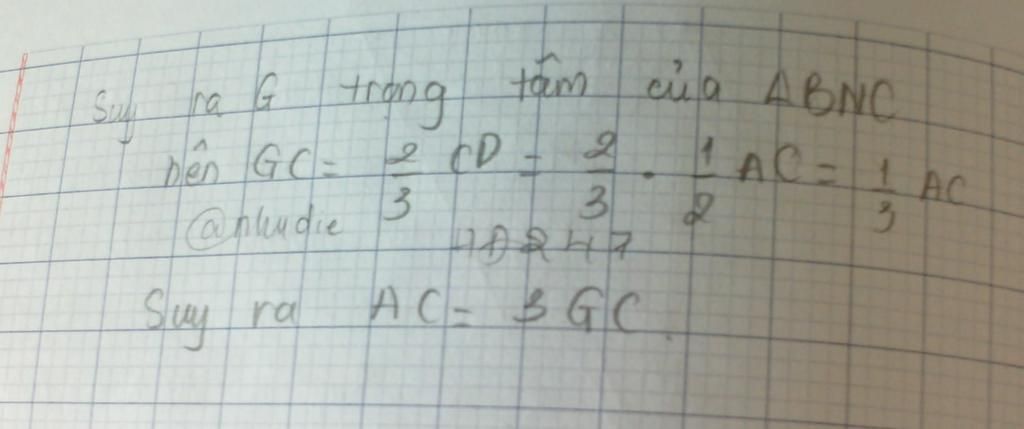 Suy ra G trọng tâm của ABNC
nên GC = 2/3 CD = 2/3 . 1/2 AC = 1/3 AC
Suy ra AC = 3 GC